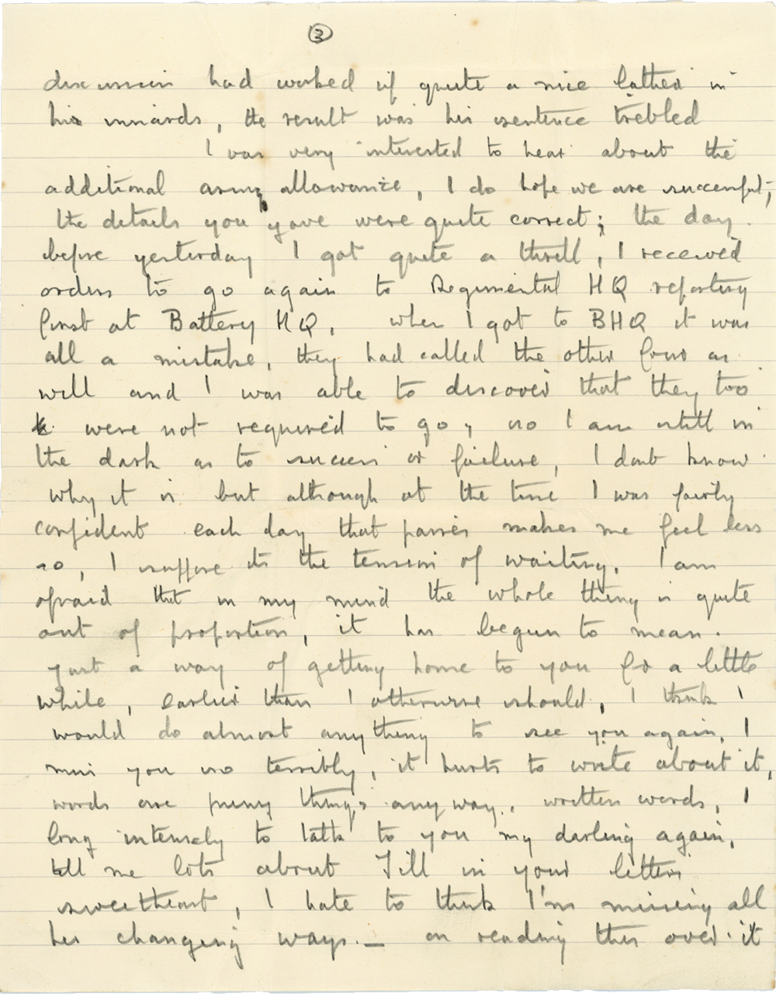 ②
discussion had worked up quite a nice lather in
his innards, the result was his sentence trebled
I was very interested to hear about the
additional army allowance, I do hope we are successful,
the details you gave were quite correct; the day
before yesterday I got quite a thrill, I received
orders to go again to Regimental HQ reporting
first at Battery HQ, when I got to BHQ it was
all a mistake, they had called the other four as
well and I was able to discover that they too
were not required to go, so I am still in
the dark as to success or failure, I dont know
why it is but although at the time I was fairly
confident each day that passes makes me feel less
so, I suppose its the tension of waiting. I am
afraid that in my mind the whole thing is quite
out of proportion, it has begun to mean
just a way of getting home to you for a little
while, earlier than I otherwise should, I think I
would do almost anything to see you again, I
miss you so terribly, it hurts to write about it,
words are puny things anyway, written words, I
long intensely to talk to you my darling again,
tell me lots about Jill in your letters
sweetheart, I hate to think I'm missing all
her changing ways. — on reading this over it